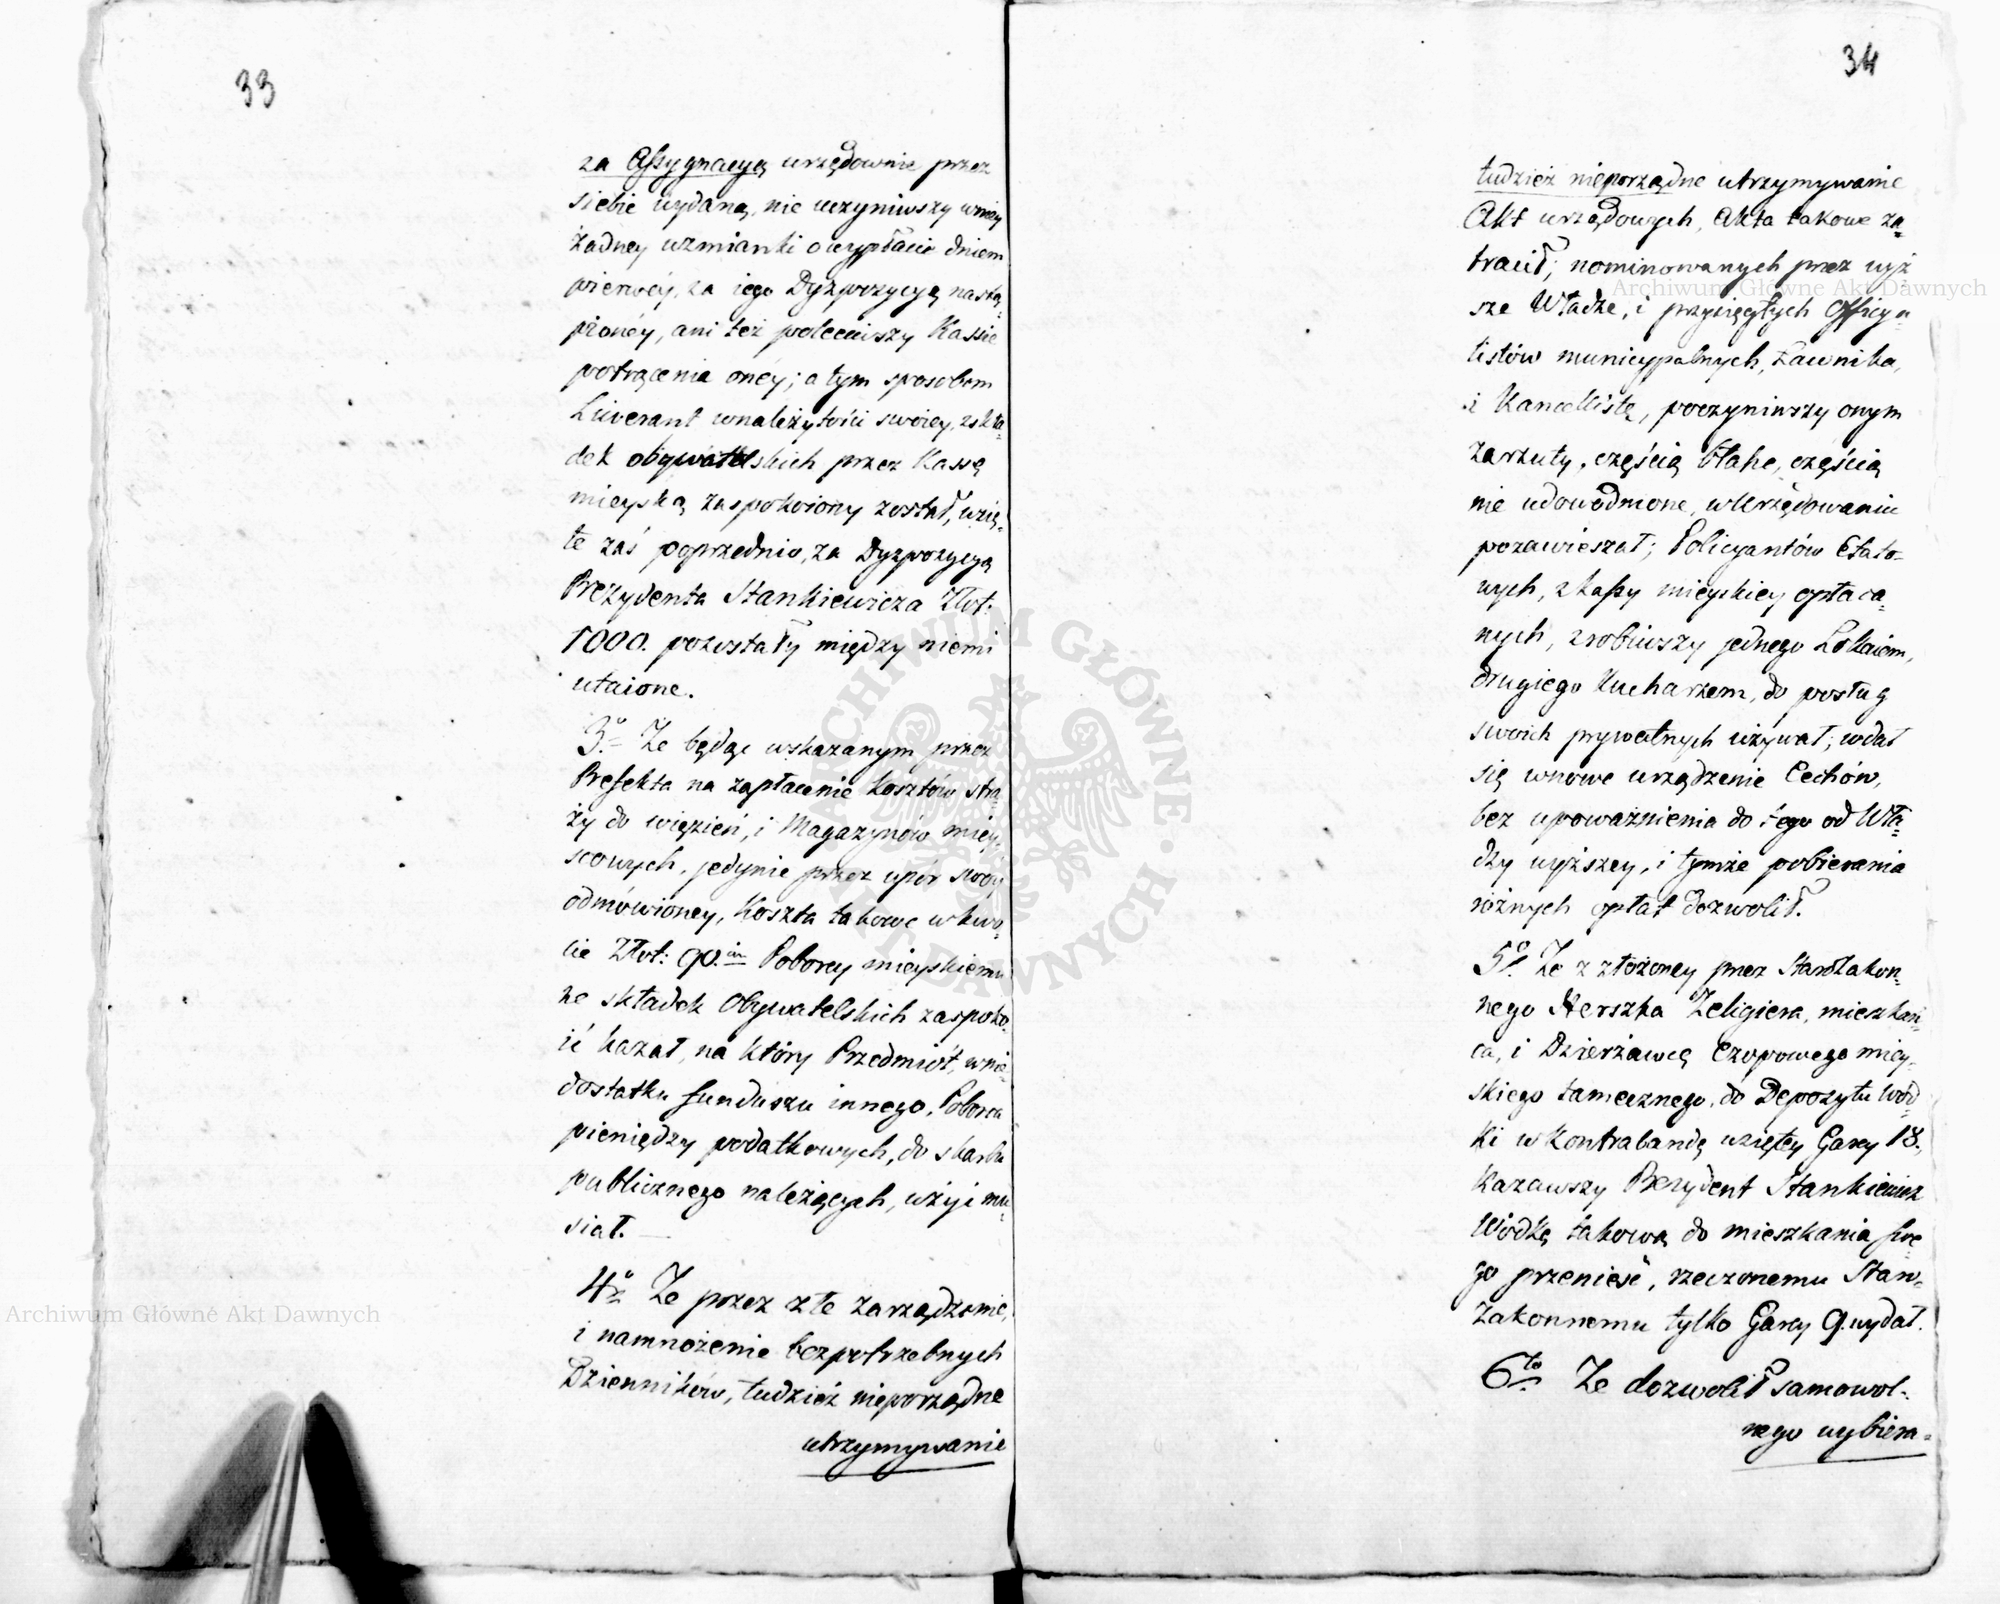 33
za Assygnacyą urzędownie przez
siebie wydaną, nie uczyniwszy w niey
żadney wzmianki o wypłacie dniem
pierwéy, za iego Dyzpozycyą nastą-
pionéy, ani też poleciwszy Kassie
potrącenia onéy; a tym sposobem
Liwerant w należytości swoiey, z skła-
dek obywatelskich przez Kassę
mieyską zaspokoiony został, wzię-
te zaś poprzednio, za Dyzpozycyą
Prezydenta Stankiewicza Złot:
1000. pozostały między niemi
utaione.
3.º Że będąc wskazanym przez
Prefekta na zapłacenie kosztów stra-
ży do więzień, i Magazynów miey-
scowych, jedynie przez upór swóy
odmówioney, Koszta takowe w kwo-
cie Złot: 90. Poborcy mieyskiemu
ze składek Obywatelskich zaspoko-
ić kazał, na który Przedmiót, w nie-
dostatku funduszu innego, Poborca
pieniędzy podatkowych, do skarbu
publicznego należących, użyć mu-
siał. —
4º Że przez złe zarządzenie,
i namnożenie bezpotrzebnych
Dzienników, tudzież nieporządne
utrzymywanie
34
tudzież nieporządne utrzymywanie
Akt urzędowych, Akta takowe za-
tracił; nominowanych przez wyż-
sze Władze, i przysięgłych Officya-
listów municypalnych, Ławnika,
i Kancellistę, poczyniwszy onym
zarzuty, częścią błahe, częścią
nie udowodnione, w Urzędowaniu
pozawieszał; Policyantów Etato-
wych, z Kassy mieyskiey opłaca-
nych, zrobiwszy jednego Lokaiem,
drugiego Kucharzem, do posług
swoich prywatnych używał; wdał
się w nowe urządzenie Cechów,
bez upoważnienia do tego od Wła-
dzy wyższey, i tymże pobierania
różnych opłat dozwolił.
5º Że z złożoney przez Starozakon-
nego Herszka Zeligiera, mieszkań-
ca, i Dzierżawcę Czopowego miey-
skiego tamecznego, do Depozytu Wód-
ki w Kontrabandę wziętey Garcy 18.,
Kazawszy Prezydent Stankiewicz
Wódkę takową do mieszkania swe-
go przenieść, rzeczonemu Staro-
zakonnemu tylko Garcy 9. wydał.
6to Że dozwolił samowol-
nego wybiera-
Archiwum Główne Akt Dawnych
Archiwum Główne Akt Dawnych
ARCHIWUM GŁÓWNE AKT DAWNYCH